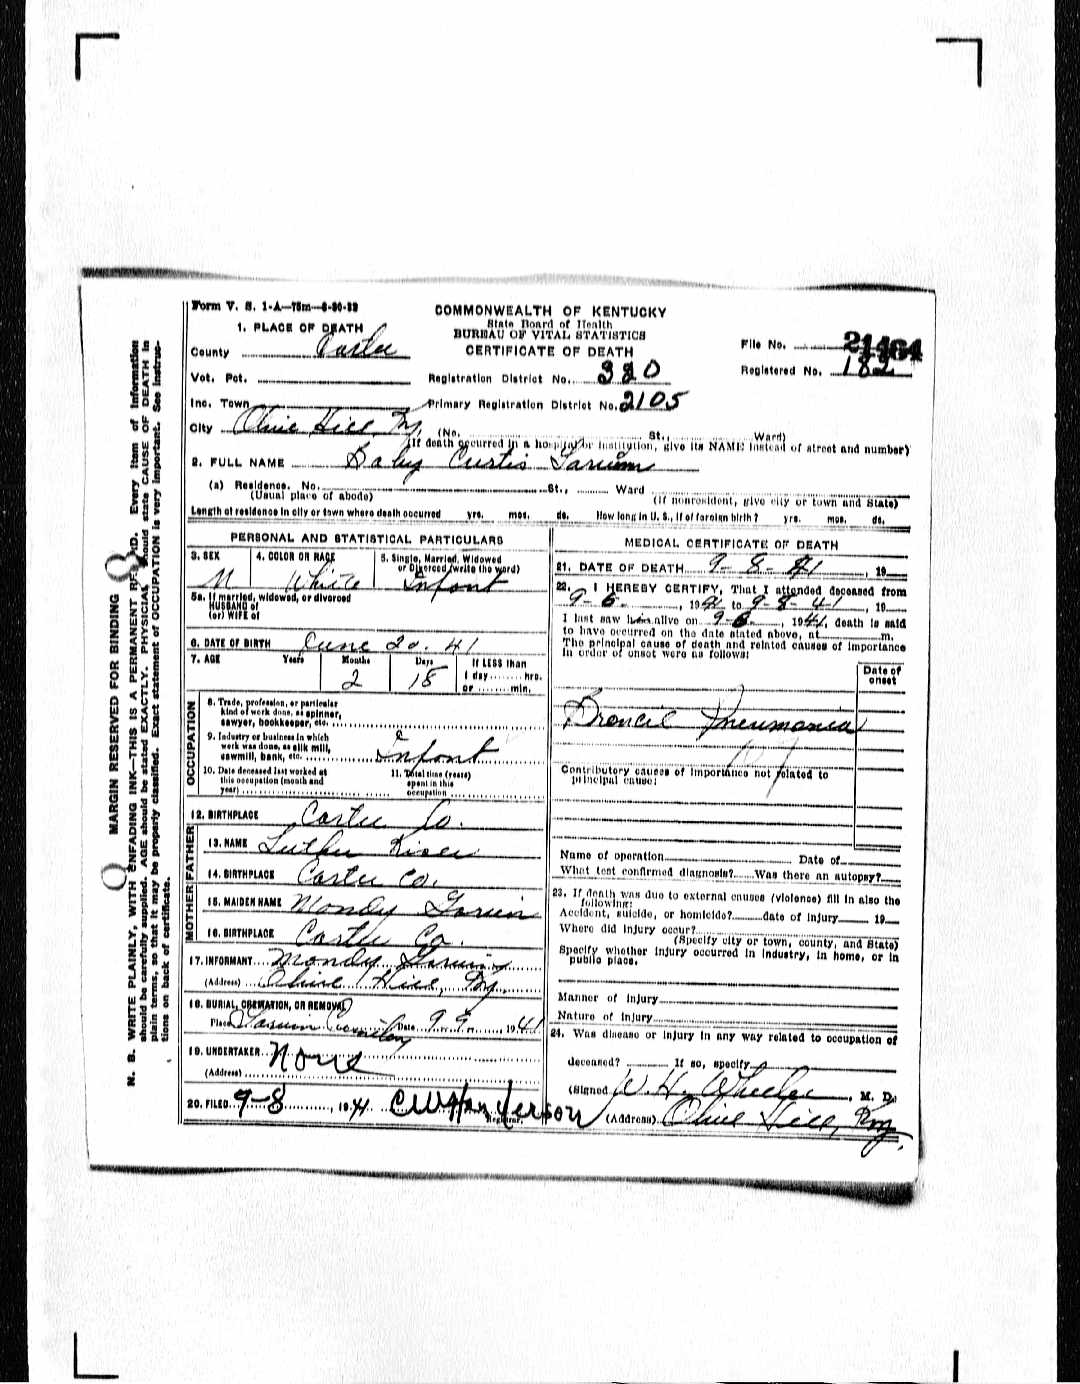 Form V. S. 1-A—75m—6-30-39
COMMONWEALTH OF KENTUCKY
State Board of Health
BUREAU OF VITAL STATISTICS
CERTIFICATE OF DEATH
File No. 21464
Registered No. 182
1. PLACE OF DEATH
County Carter
Vot. Pct.
Registration District No. 320
Inc. Town
Primary Registration District No. 2105
City Olive Hill, Ky. (No. St., Ward)
(If death occurred in a hospital or institution, give its NAME instead of street and number)
2. FULL NAME Baby Curtis
(a) Residence. No. St., Ward
(Usual place of abode) (If nonresident, give city or town and State)
Length of residence in city or town where death occurred yrs. mos. ds. How long in U. S., if of foreign birth? yrs. mos. ds.
PERSONAL AND STATISTICAL PARTICULARS
3. SEX 4. COLOR OR RACE 5. Single, Married, Widowed or Divorced (write the word)
M White Infant
5a. If married, widowed, or divorced
HUSBAND of
(or) WIFE of
6. DATE OF BIRTH June 20. 41
7. AGE Years Months Days If LESS than
2 18 1 day hrs.
or min.
OCCUPATION
8. Trade, profession, or particular
kind of work done, as spinner,
sawyer, bookkeeper, etc.
9. Industry or business in which
work was done, as silk mill,
sawmill, bank, etc. Infant
10. Date deceased last worked at
this occupation (month and
year)
11. Total time (years)
spent in this
occupation
12. BIRTHPLACE Carter Co.
FATHER
13. NAME Luther
14. BIRTHPLACE Carter Co.
MOTHER
15. MAIDEN NAME Mondy
16. BIRTHPLACE Carter Co.
17. INFORMANT Mondy
(Address) Olive Hill, Ky.
18. BURIAL, CREMATION, OR REMOVAL
Place Cemetery Date 9 9 1941
19. UNDERTAKER None
(Address)
20. FILED 9-8, 1941 Registrar.
MEDICAL CERTIFICATE OF DEATH
21. DATE OF DEATH 9-8-41, 19
22. I HEREBY CERTIFY, That I attended deceased from
9-6, 1941 to 9-8-41, 19
I last saw him alive on 9-6, 1941, death is said
to have occurred on the date stated above, at m.
The principal cause of death and related causes of importance
in order of onset were as follows:
Date of
onset
Broncil Pneumonia
107
Contributory causes of importance not related to
principal cause:
Name of operation Date of
What test confirmed diagnosis? Was there an autopsy?
23. If death was due to external causes (violence) fill in also the
following:
Accident, suicide, or homicide? date of injury 19
Where did injury occur?
(Specify city or town, county, and State)
Specify whether injury occurred in industry, in home, or in
public place.
Manner of injury
Nature of injury
24. Was disease or injury in any way related to occupation of
deceased? If so, specify
(Signed W. H. Wheeler, M. D.
(Address) Olive Hill, Ky.
MARGIN RESERVED FOR BINDING
N. B. WRITE PLAINLY, WITH UNFADING INK—THIS IS A PERMANENT RECORD. Every item of information
should be carefully supplied. AGE should be stated EXACTLY. PHYSICIAS should state CAUSE OF DEATH in
plain terms, so that it may be properly classified. Exact statement of OCCUPATION is very important. See instruc-
tions on back of certificate.